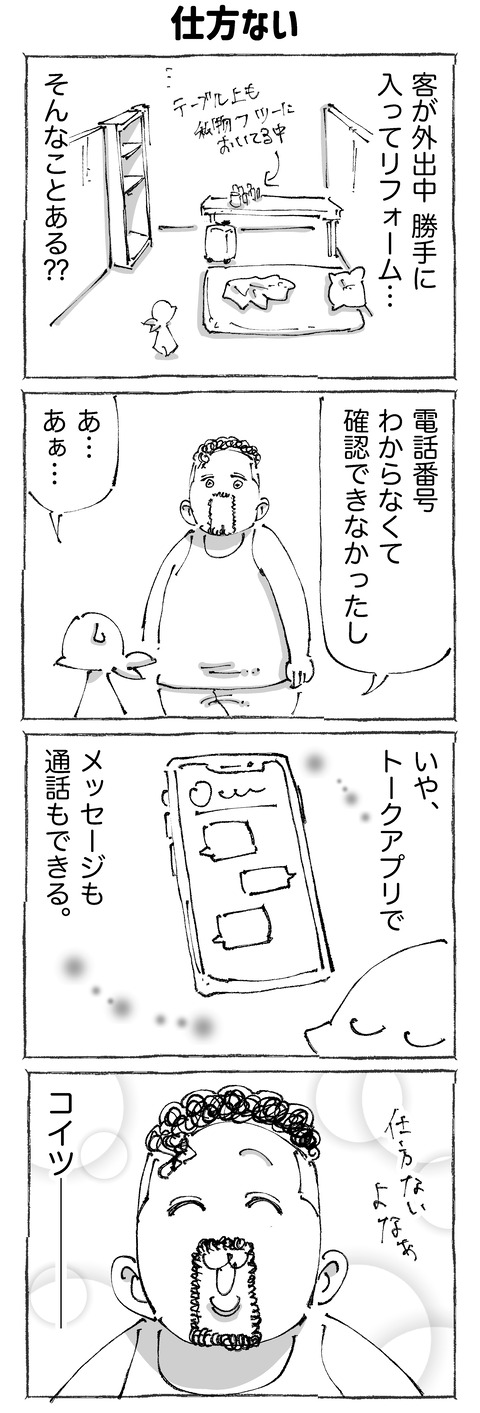 仕方ない
客が外出中 勝手に
入ってリフォーム…
…
テーブル上も
私物フツーに
おいてる中
そんなことある??
電話番号
わからなくて
確認できなかったし
あ…
あぁ…
いや、
トークアプリで
メッセージも
通話もできる。
仕方ない
よなぁ
コイツ――